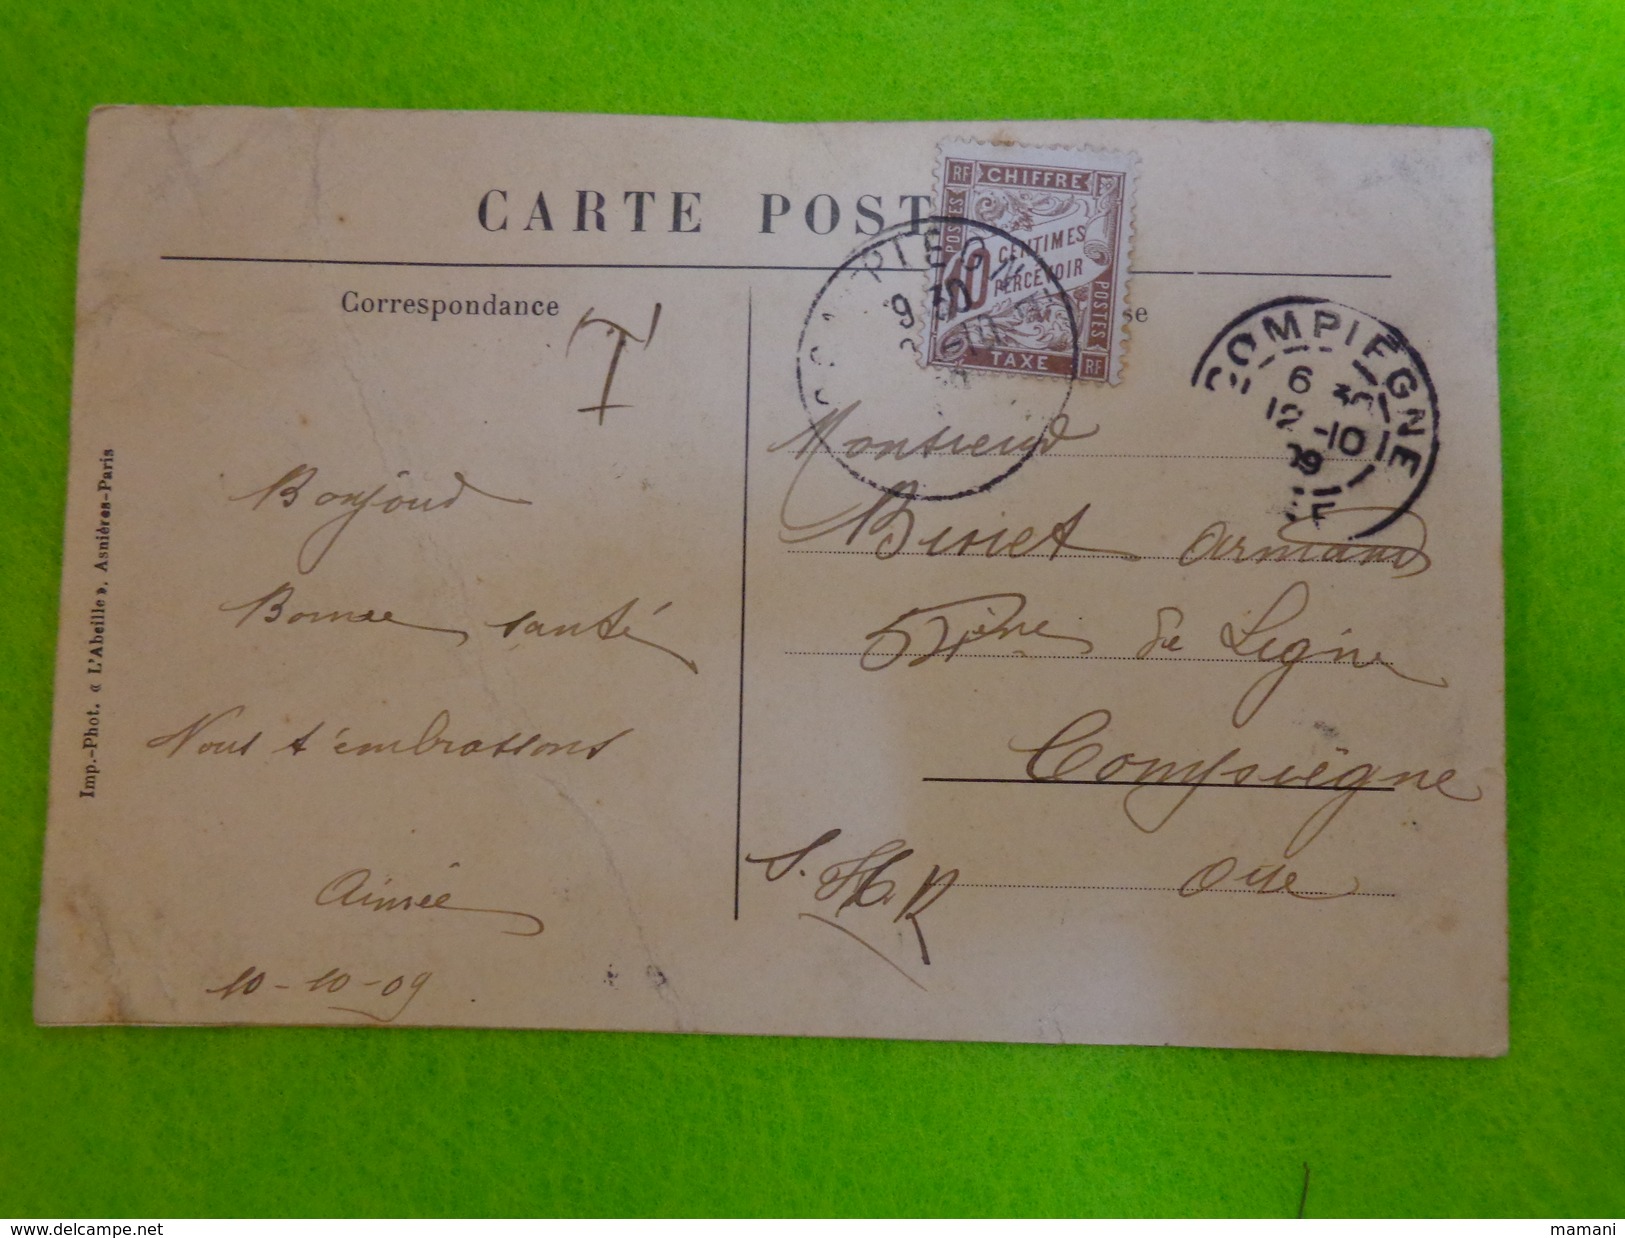 CARTE POST
Correspondance
se
T
RF CHIFFRE
POSTES
10 CENTIMES
PERCEVOIR
POSTES
TAXE RF
PIEGN
9 30
COMPIÈGNE
6 30
12-10
09
Imp.-Phot. « L'Abeille ». Asnières-Paris
Bonjour
Bonne santé
Nous t'embrassons
Aimée
10-10-09
Monsieur
Binet Armand
de Ligne
Compiègne
Oise
S. H. R
mamani
www.delcampe.net